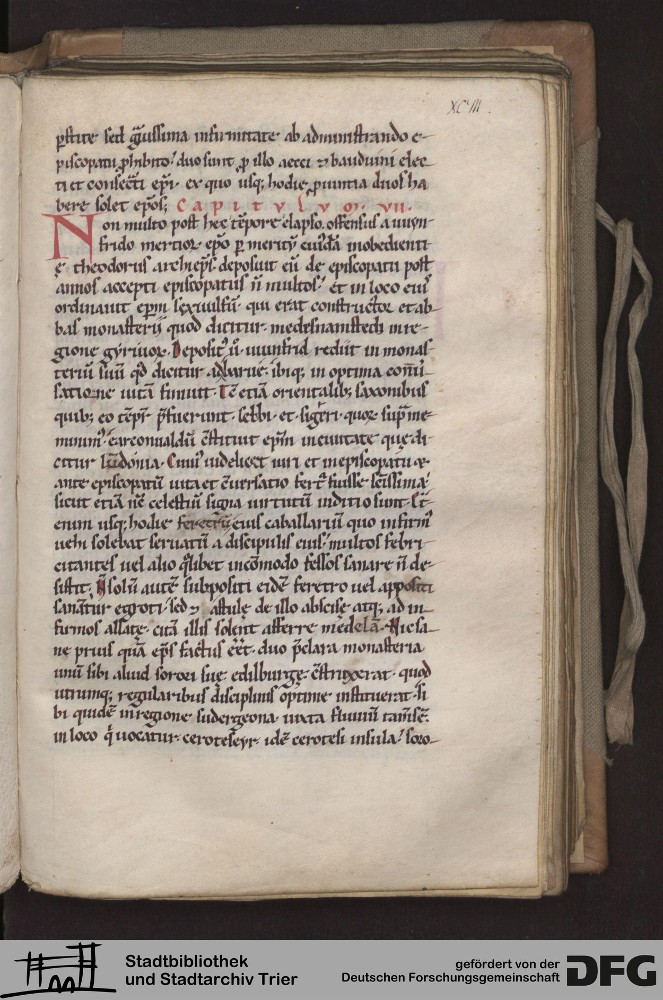 XCIII.
p̄stite sed ḡuissima infirmitate ab administrando e-
piscopatu ꝓhibito; duo sunt ꝓ illo aecci ⁊ bauduini elec-
ti et consec̄ti epī. ex quo usq; hodie ꝓuintia duos ha
bere solet epōs; Capitulum. VII.
Non multo post hec tēpore elapso. offensus a uuyn-
frido mertioꝝ epō ꝑ meritū cuiusdā inobedienti-
ę theodorus archiepс̄ deposuit eū de episcopatu post
annos accepti episcopatus n̄ multos. et in loco eius
ordinauit epm̄ sexuulfū qui erat constructor et ab-
bas monasterii quod dicitur medeshamstedi in re-
gione gyruioꝝ. Deposit' u̅ uuinfrid rediit in monas-
teriū suū qd̄ dicitur adbarue. ibiq; in optima conu̅-
satione uitā finiuit. Tc̄ etiā orientalib; saxonibus
quib; eo tēpr̄ p̄fuerunt. sebbi. et. sigheri. quoꝝ sup̄me-
minim'. earconualdū c̄stituit epm̄ in ciuitate que di-
citur lūdonia. Cuius uidelicet uiri et in episcopatu ⁊
ante episcopatū uita et c̄uersatio fert̄ fuisse sc̄issima
sicut etiā nc̄ celestiū signa uirtutū inditio sunt. Et-
enim usq; hodie feretrū eius caballariū quo infirm'
uehi solebat seruatū a discipulis eius multos febri-
citantes uel alio q̄libet incōmodo fessos sanare n̄ de-
sistit. N̄ solū autē subpositi eidē feretro uel appositi
sanātur egroti. sed ⁊ astulę de illo abscise atq; ad in-
firmos allatę. citā illis solent afferre medelā. Hic sa-
ne prius quā epс̄ factus eēt. duo p̄clara monasteria
unū sibi aliud sorori suę edilburgę c̄struxerat. quod
utrumq; regularibus disciplinis optime instituerat. si-
bi quidē in regione sudergeona iuxta fluuiū tamisē.
in loco q̄ uocatur. cerotesęyr. idē ceroteſi insula. soro-
Stadtbibliothek
und Stadtarchiv Trier
gefördert von der
Deutschen Forschungsgemeinschaft
DFG